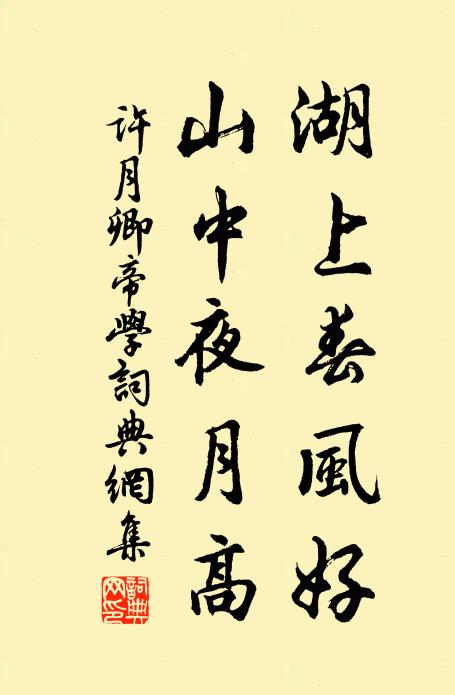 湖上春風好
山中夜月高
許月卿帝學詞典網集
詞典網印